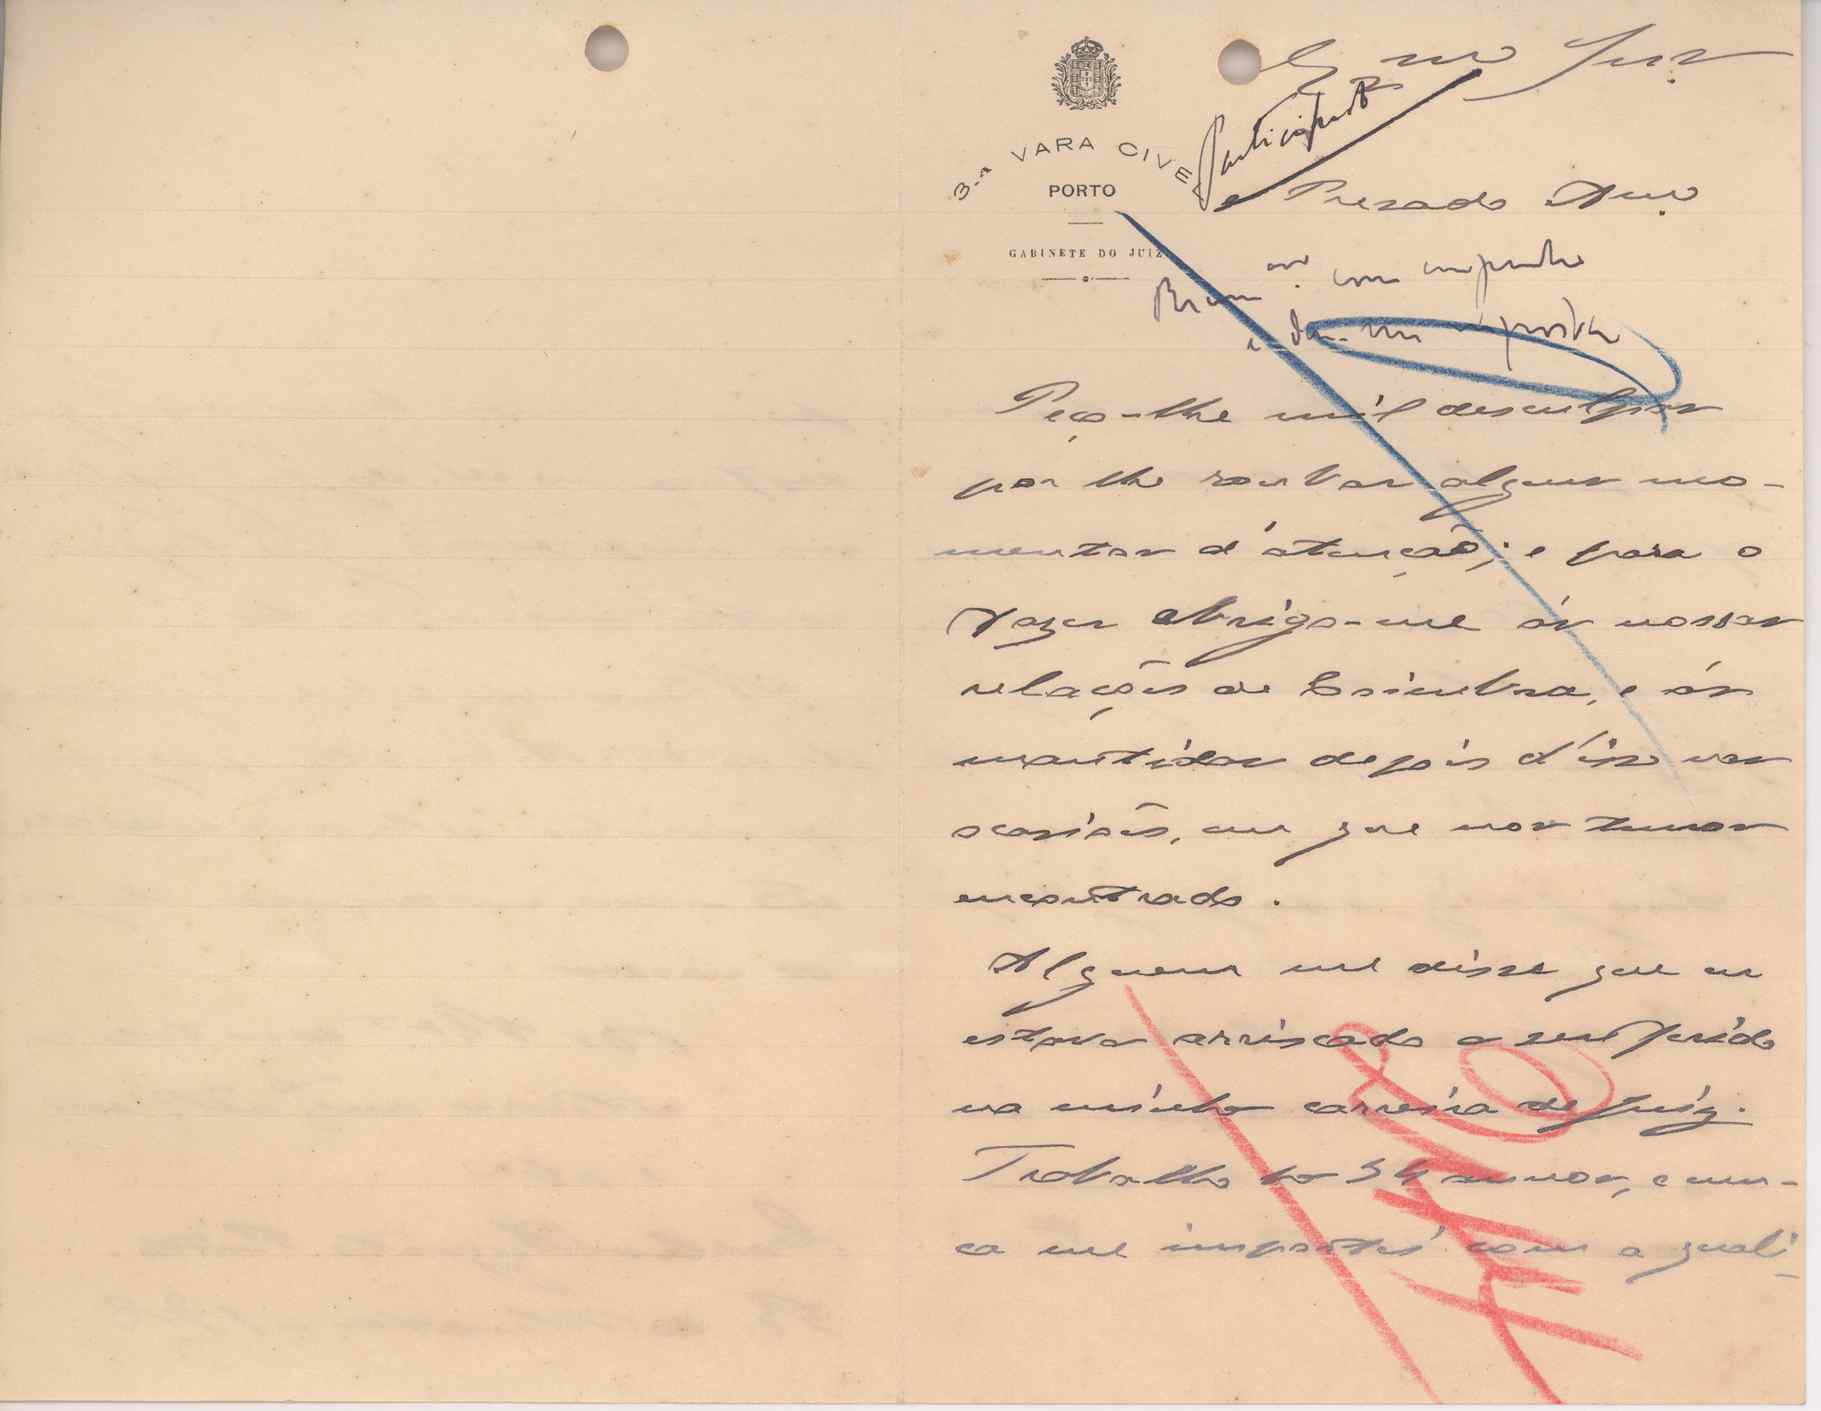 3.ª VARA CIVEL
PORTO
GABINETE DO JUIZ
Particular
Prezado Amo
com empenho
Peço-lhe mil desculpas
por lhe roubar alguns mo-
mentos d'atenção; e para o
fazer obrigo-me ás nossas
relações de Coimbra, e ás
mantidas depois d'isso nas
ocasiões, em que nos temos
encontrado.
Alguem me disse que eu
estava arriscado a ser ferido
na minha carreira de juiz.
Trabalho ha 34 annos, e nun-
ca me importei com a quali-